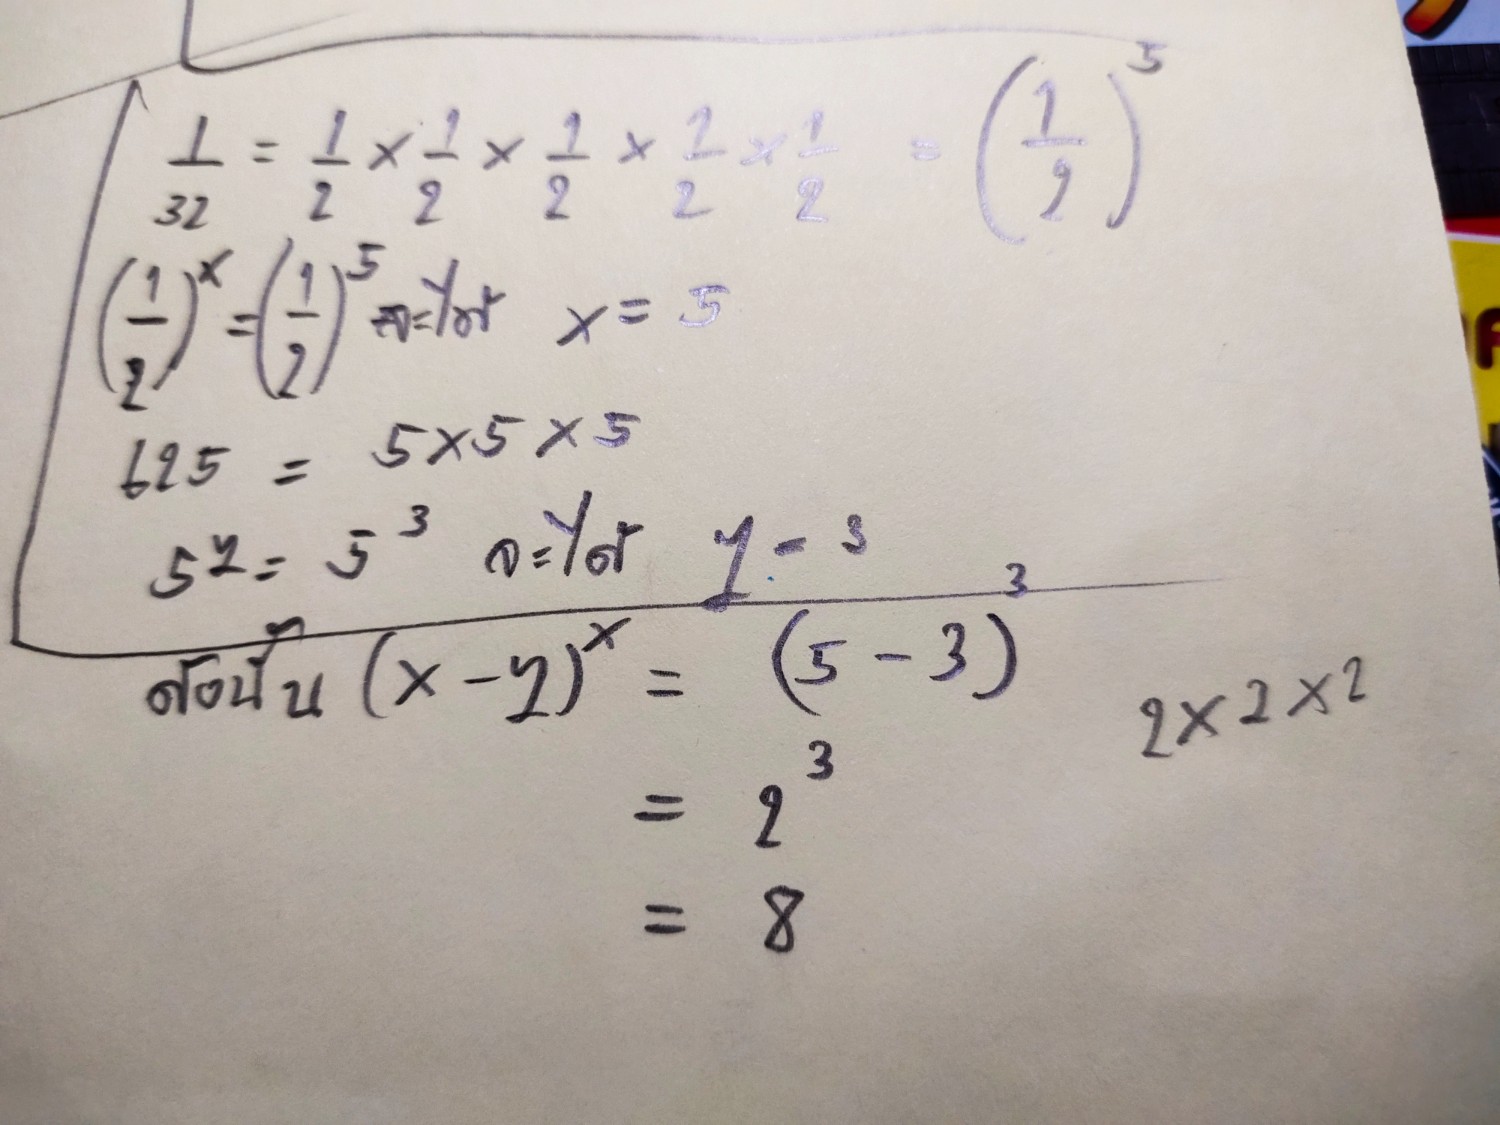 1/32 = 1/2 × 1/2 × 1/2 × 1/2 × 1/2 = (1/2)^5
(1/2)^x = (1/2)^5 จะได้ x = 5
625 = 5×5×5
5^y = 5^3 จะได้ y = 3
ดังนั้น (x-y)^x = (5-3)^3
2×2×2
= 2^3
= 8